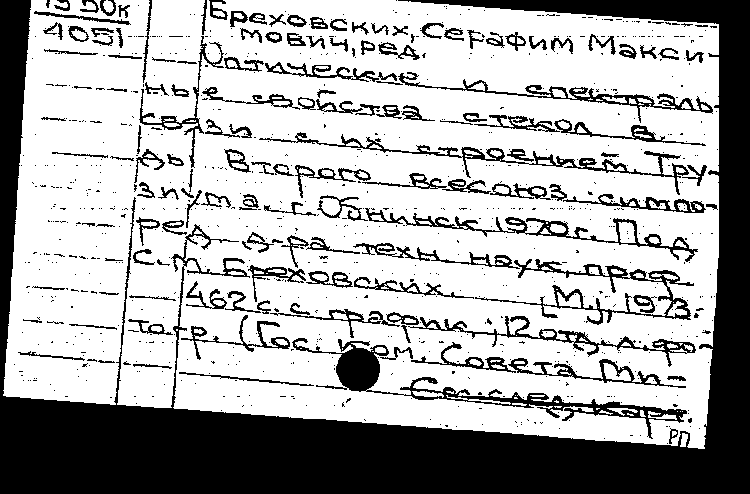 1950к
4051
Бреховских, Серафим Макси-
мович, ред.
Оптические и спектраль-
ные свойства стекол в
связи с их строением. Тру-
ды Второго всесоюз. симпо-
зиума. г. Обнинск, 1970 г. Под
ред. д-ра техн. наук, проф.
С.М. Бреховских. [М], 1973.
462 с. с график.; 12 отд. л. фо-
тогр. (Гос. ком. Совета Ми-
См. след. карт.
РП